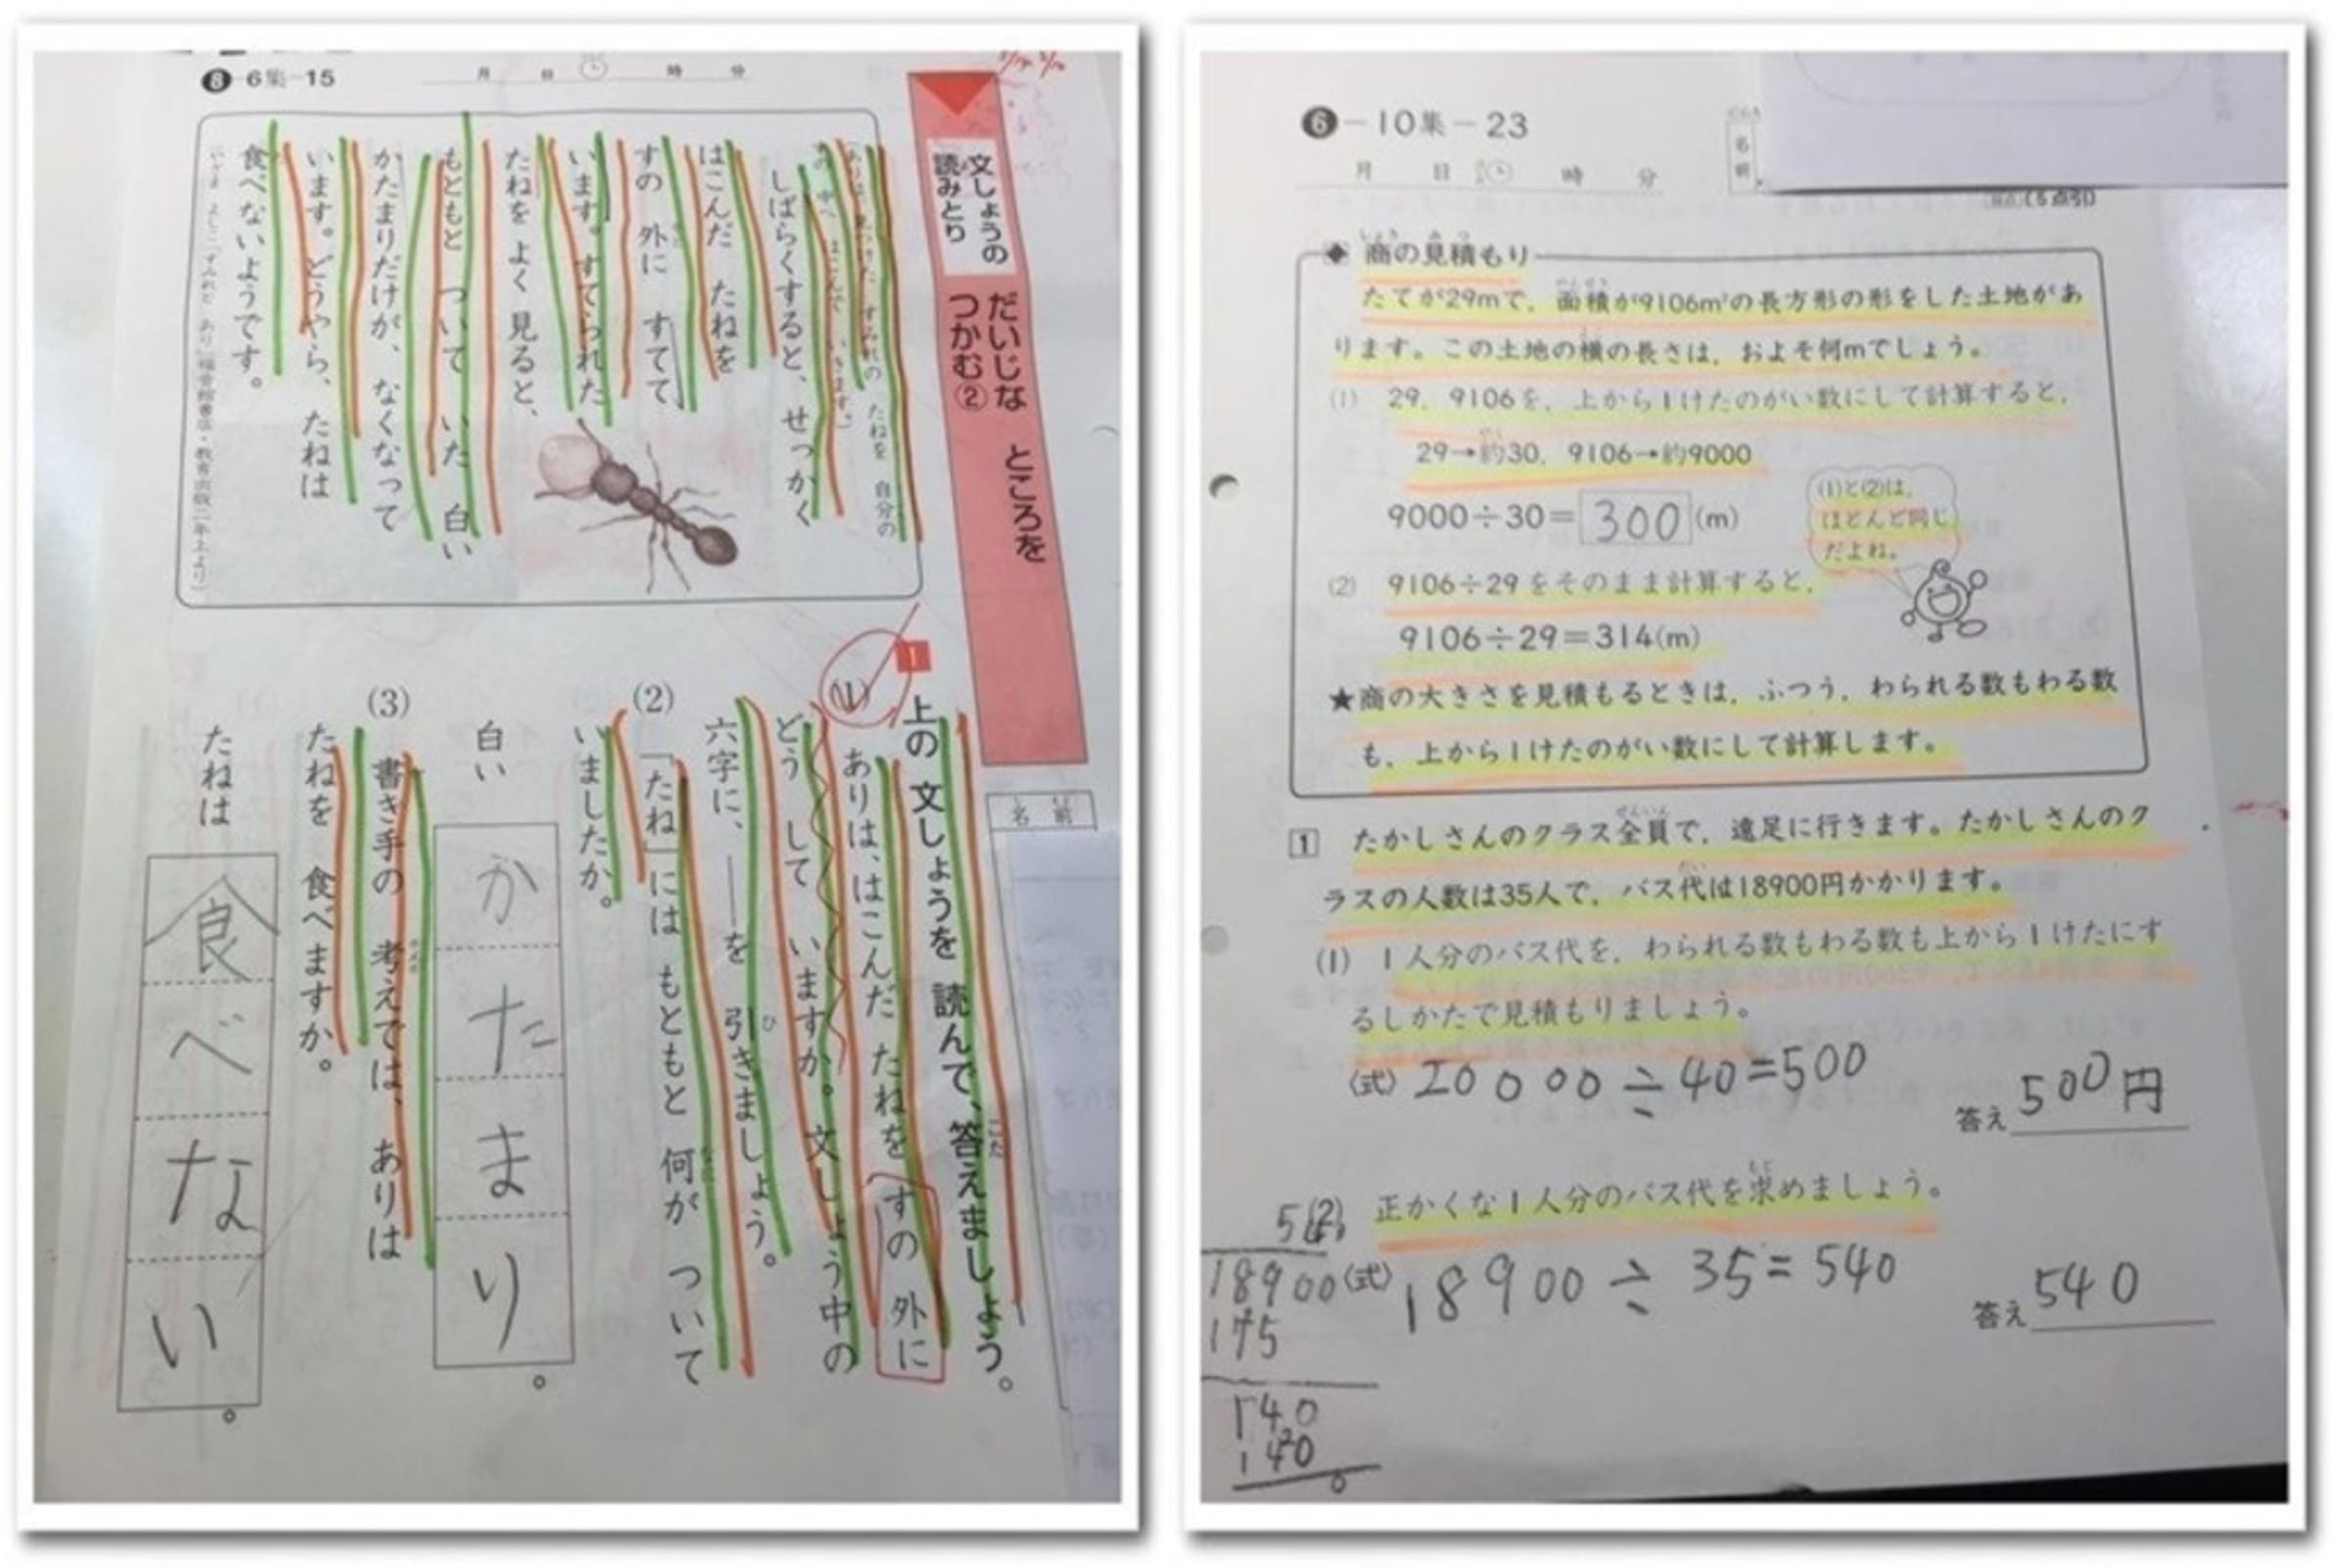 8 6集-15
月 日 時 分
文しょうの
読みとり
だいじな ところを
つかむ②
(ありは、見つけた すみれの たねを 自分の
すの 中へ はこんで いきます。)
しばらくすると、せっかく
はこんだ たねを
すの 外に すてて
います。すてられた
たねを よく 見ると、
もともと ついて いた 白い
かたまりだけが、なくなって
います。どうやら、たねは
食べないようです。
名前
1 上の 文しょうを 読んで、答えましょう。
(1) ありは、はこんだ たねを すの 外に
どう して いますか。文しょう中の
六字に、——を 引きましょう。
(2) 「たね」には もともと 何が ついて
いましたか。
白い かたまり。
(3) 書き手の 考えでは、ありは
たねを 食べますか。
たねは 食べない。
6-10集-23
月 日 時 分
名前
(5点引)
◆商の見積もり
たてが29mで、面積が9106m²の長方形の形をした土地があ
ります。この土地の横の長さは、およそ何mでしょう。
(1) 29、9106を、上から1けたのがい数にして計算すると、
29→約30、9106→約9000
9000÷30=300(m)
(1)と(2)は、
ほとんど同じ
だよね。
(2) 9106÷29をそのまま計算すると、
9106÷29=314(m)
★商の大きさを見積もるときは、ふつう、わられる数もわる数
も、上から1けたのがい数にして計算します。
1 たかしさんのクラス全員で、遠足に行きます。たかしさんのク
ラスの人数は35人で、バス代は18900円かかります。
(1) 1人分のバス代を、わられる数もわる数も上から1けたにす
るしかたで見積もりましょう。
(式) 20000÷40=500
答え 500円
(2) 正かくな1人分のバス代を求めましょう。
(式) 18900÷35=540
答え 540
18900
175
140
140
0